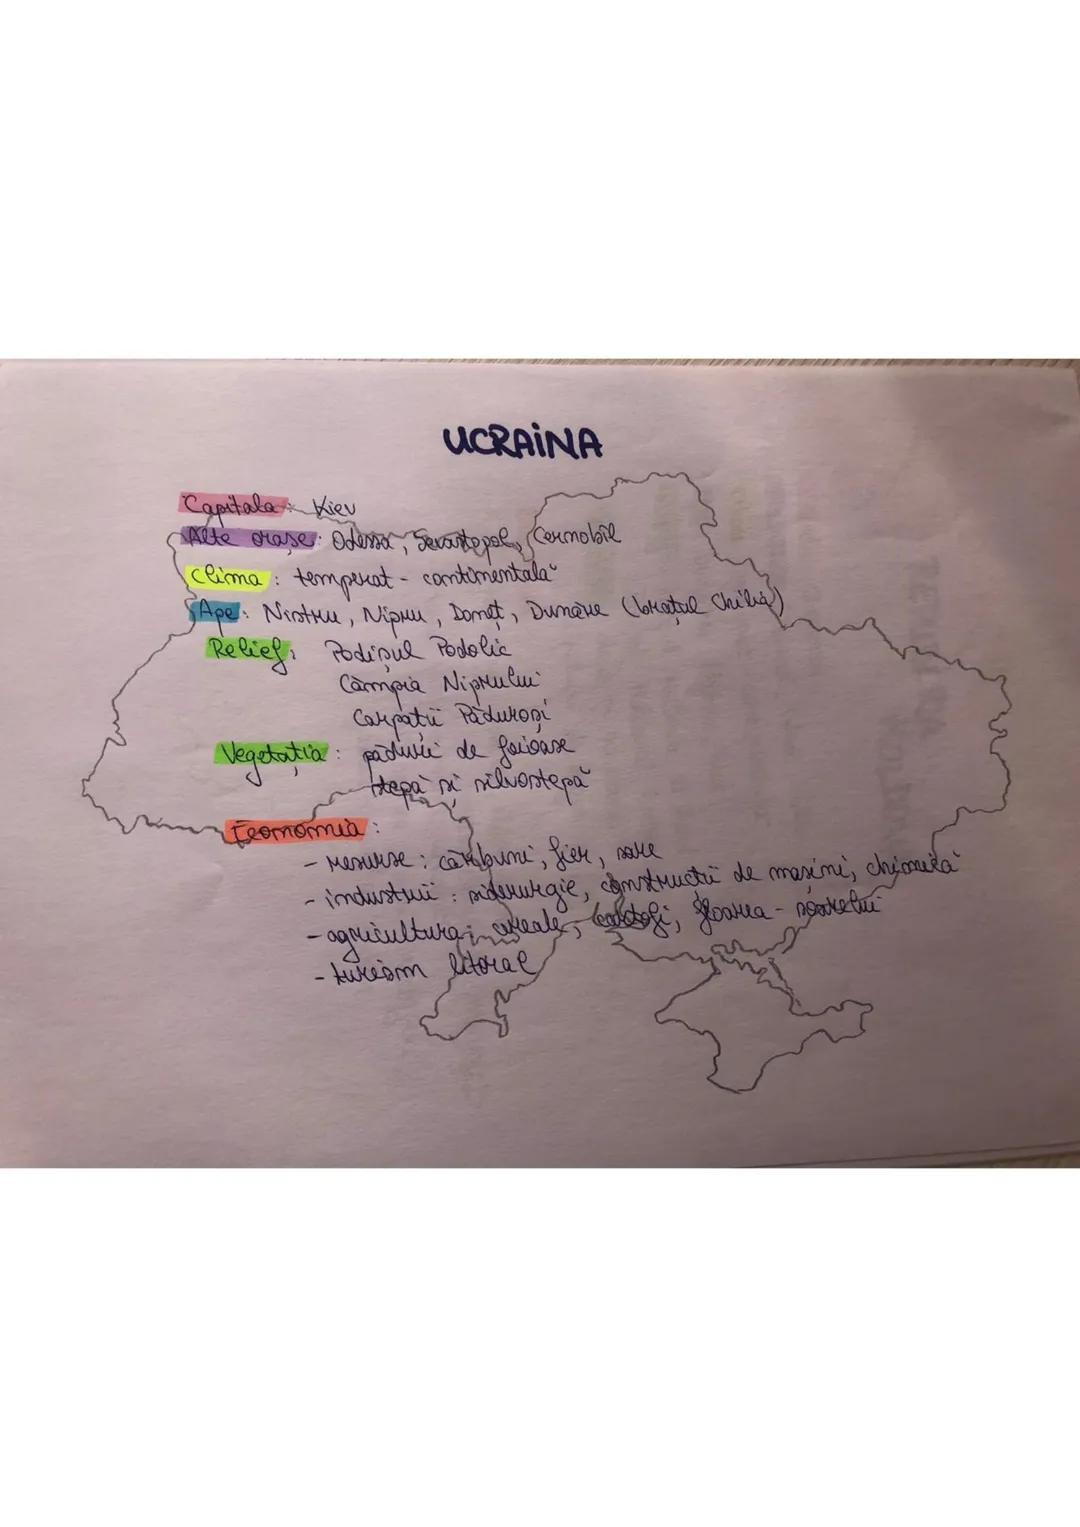 UCRAiNA
Capitala: Kiev
Alte orașe: Odessa, Sevastopol, Cernobîl
Clima: temperat - continentală
Ape: Nistru, Nipru, Doneț, Dunăre (brațul Chilia)
Relief: Podișul Podolic
Câmpia Niprului
Carpații Păduroși
Vegetația: păduri de foioase
stepă și silvostepă
Economia:
- resurse: cărbuni, fier, sare
- industrii: siderurgie, construcții de mașini, chimică
- agricultura: cereale, cartofi, floarea-soarelui
- turism litoral